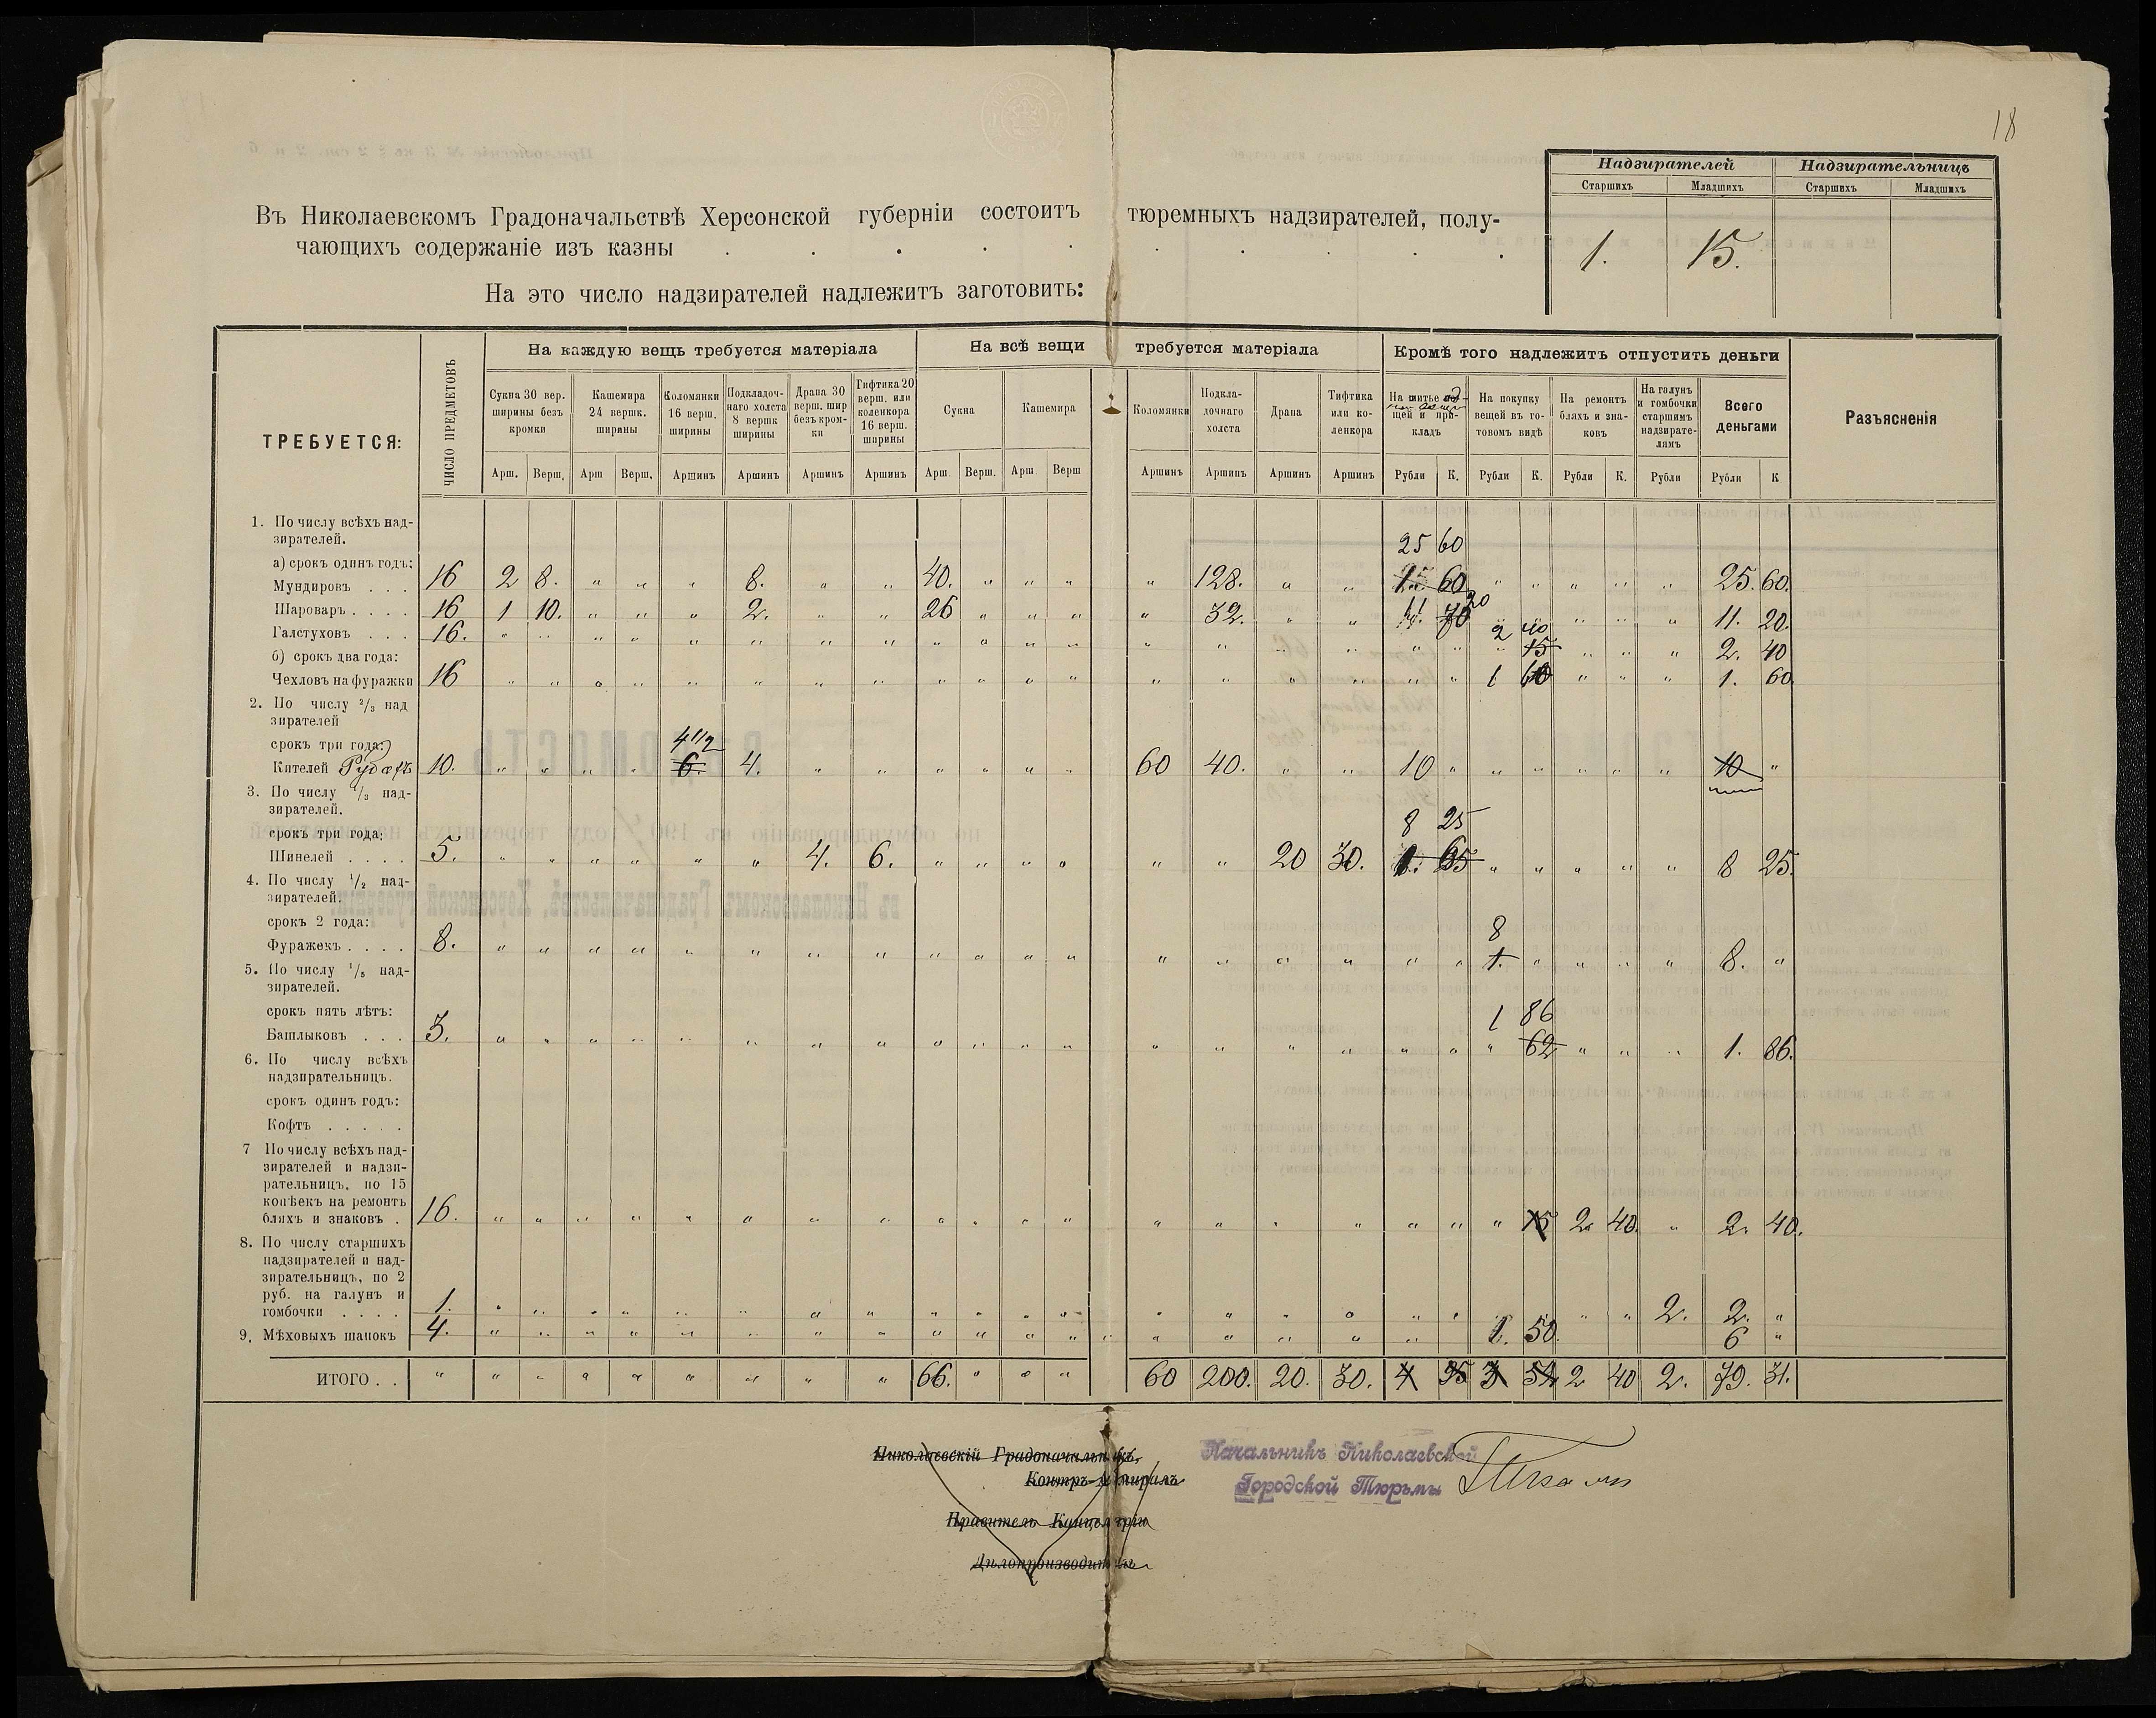 18
Надзирателей Надзирательницъ
Старшихъ Младшихъ Старшихъ Младшихъ
1. 15.
Въ Николаевскомъ Градоначальствѣ Херсонской губерніи состоитъ тюремныхъ надзирателей, полу-
чающихъ содержаніе изъ казны . . . . . . . . . .
На это число надзирателей надлежитъ заготовить:
ТРЕБУЕТСЯ:
ЧИСЛО ПРЕДМЕТОВЪ
На каждую вещь требуется матеріала
На всѣ вещи требуется матеріала
Кромѣ того надлежитъ отпустить деньги
Разъясненія
Сукна 30 вер. ширины безъ кромки
Кашемира 24 вершк. ширины
Коломянки 16 верш. ширины
Подкладоч-наго холста 8 вершк ширины
Драпа 30 верш. шир безъ кром-ки
Гифтика 20 верш. или коленкора 16 верш. ширины
Сукна
Кашемира
Коломянки
Подкла-дочнаго холста
Драпа
Тифтика или ко-ленкора
На шитье щей и при-кладъ
На покупку вещей въ го-товомъ видѣ
На ремонтъ бляхъ и зна-ковъ
На галунъ и гомбочки старшимъ надзирате-лямъ
Всего деньгами
Арш. Верш. Арш Верш. Аршинъ Аршинъ Аршинъ Аршинъ Арш Верш. Арш Верш Аршинъ Аршинъ Аршинъ Аршинъ Рубли К. Рубли К. Рубли К. Рубли Рубли К
1. По числу всѣхъ над-
зирателей.
25 60
а) срокъ одинъ годъ:
Мундировъ . . . 16 2 8. " " " 8. " " 40. " " " " 128. " " 1. 60 " " " " " 25. 60.
Шароваръ . . . . 16 1 10. " " " 2. " " 26 " " " " 32. " " 11. 70 20 " " " " " 11. 20.
Галстуховъ . . . 16. " " " " " " " " " " " " " " " " " " 2 40 " 15 " " " 2. 40
б) срокъ два года:
Чехловъ на фуражки 16 " " " " " " " " " " " " " " " " " " 1 60 " " " 1. 60
2. По числу 2/3 над
зирателей
срокъ три года:
4 1/2
Кителей Рубахъ 10. " " " " 6. 4. " " " " " " 60 40. " " 10 " " " " " " 10 "
3. По числу 1/3 над-
зирателей.
срокъ три года:
8 25
Шинелей . . . . 5. " " " " " " 4. 6. " " " " " " 20 30. 1. 65 " " " " " 8 25.
4. По числу 1/2 над-
зирателей.
срокъ 2 года:
8
Фуражекъ . . . . 8. " " " " " " " " " " " " " " " " " " 1. " " " " 8. "
5. По числу 1/5 над-
зирателей.
срокъ пять лѣтъ:
1 86
Башлыковъ . . . 3. " " " " " " " " " " " " " " " " " " " 62 " " " 1. 86.
6. По числу всѣхъ
надзирательницъ.
срокъ одинъ годъ:
Кофтъ . . . . .
7 По числу всѣхъ над-
зирателей и надзи-
рательницъ, по 15
копѣекъ на ремонтъ
бляхъ и знаковъ . 16. " " " " " " " " " " " " " " " " " " " 15 2. 40. " 2. 40.
8. По числу старшихъ
надзирателей и над-
зирательницъ, по 2
руб. на галунъ и
гомбочки . . . . 1. " " " " " " " " " " " " " " " " " " " " " 2. 2. "
9. Мѣховыхъ шапокъ 4. " " " " " " " " " " " " " " " " " 1. 50. 6 "
ИТОГО . . " " " " " " " " " 66. " " " 60 200. 20. 30. 4 35 3 52 2 40 2. 79. 31.
Николаевскій Градоначальникъ,
Контръ-Адмиралъ
Правитель Канцеляріи
Дѣлопроизводитель
Начальникъ Николаевской
Городской Тюрьмы